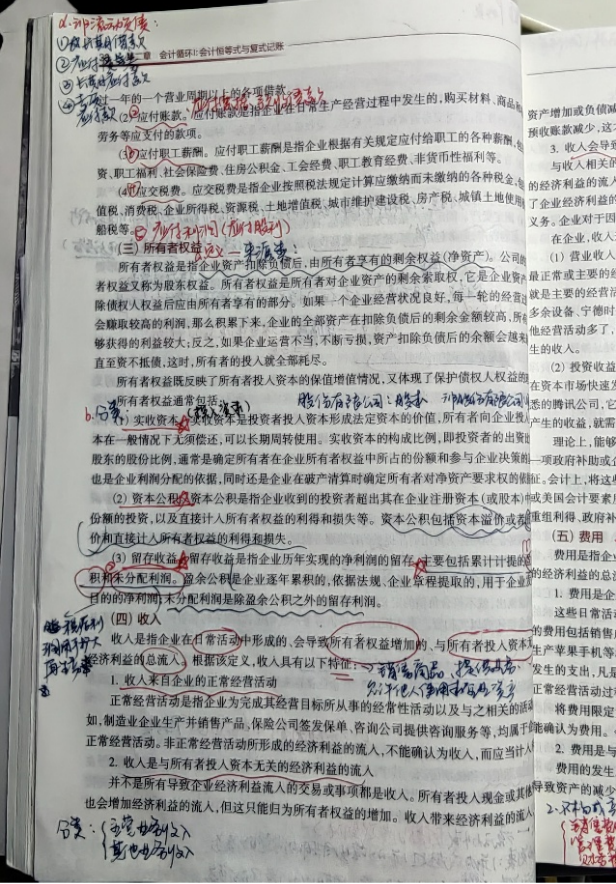 ①
②应付
③
④
章 会计循环Ⅰ:会计恒等式与复式记账
过一年的一个营业周期以上的各项借款。
(2)应付账款。应付账款是指企业在日常生产经营过程中发生的,购买材料、商品和
劳务等应支付的款项。
(3)应付职工薪酬。应付职工薪酬是指企业根据有关规定应付给职工的各种薪酬,包
资、职工福利、社会保险费、住房公积金、工会经费、职工教育经费、非货币性福利等。
(4)应交税费。应交税费是指企业按照税法规定计算应缴纳而未缴纳的各种税金,
值税、消费税、企业所得税、资源税、土地增值税、城市维护建设税、房产税、城镇土地使用
船税等。
应付利润(应付股利)
(三) 所有者权益
所有者权益是指企业资产扣除负债后,由所有者享有的剩余权益(净资产)。公司的
者权益又称为股东权益。所有者权益是所有者对企业资产的剩余索取权,它是企业资产
除债权人权益后应由所有者享有的部分。如果一个企业经营状况良好,每一轮的经营
会赚取较高的利润,那么积累下来,企业的全部资产在扣除负债后的剩余金额较高,所
够获得的利益较大;反之,如果企业运营不当,不断亏损,资产扣除负债后的余额会越来
直至资不抵债,这时,所有者的投入就全部耗尽。
所有者权益既反映了所有者投入资本的保值增值情况,又体现了保护债权人权益的
所有者权益通常包括:
b.分类:
股份有限公司:股本
(1) 实收资本。实收资本是投资者投入资本形成法定资本的价值,所有者向企业投入
本在一般情况下无须偿还,可以长期周转使用。实收资本的构成比例,即投资者的出资
股东的股份比例,通常是确定所有者在企业所有者权益中所占的份额和参与企业决策的
也是企业利润分配的依据,同时还是企业在破产清算时确定所有者对净资产要求权的依
(2) 资本公积。资本公积是指企业收到的投资者超出其在企业注册资本(或股本)中
份额的投资,以及直接计入所有者权益的利得和损失等。资本公积包括资本溢价或
价和直接计入所有者权益的利得和损失。
(3) 留存收益。留存收益是指企业历年实现的净利润的留存,主要包括累计计提的盈
积和未分配利润。盈余公积是企业逐年累积的,依据法规、企业章程提取的,用于企业
目的的净利润;未分配利润是除盈余公积之外的留存利润。
(四) 收入
收入是指企业在日常活动中形成的、会导致所有者权益增加的、与所有者投入资本
经济利益的总流入。根据该定义,收入具有以下特征:
销售商品、提供服务
1. 收入来自企业的正常经营活动
正常经营活动是指企业为完成其经营目标所从事的经常性活动以及与之相关的活动
如,制造业企业生产并销售产品,保险公司签发保单、咨询公司提供咨询服务等,均属于
正常经营活动。非正常经营活动所形成的经济利益的流入,不能确认为收入,而应当计入
2. 收入是与所有者投入资本无关的经济利益的流入
并不是所有导致企业经济利益流入的交易或事项都是收入。所有者投入现金或其他
也会增加经济利益的流入,但这只能归为所有者权益的增加。收入带来经济利益的流入
分类:主营业务收入
其他业务收入
资产增加或负债减
预收账款减少,这
3. 收入会导
与收入相关的
的经济利益的流入
了企业经济利益的
义务。企业对于因
在企业,收入
(1) 营业收入
最正常或主要的经
就是主要的经营活
多余设备、宁德时
他经营活动多了,
生的收入。
(2) 投资收益
在资本市场快速发
悉的腾讯公司,它
产生的收益,就需
理论上,能够
一项政府补助或企
证。会计上,将这些
或美国会计要素
重组利得、政府补
(五) 费用
费用是指企业
的经济利益的总
1. 费用是企
这些日常活动
的费用包括销售
生产苹果手机等
发生的支出,凡是
正常经营活动过
将费用限定
能确认为费用。
2. 费用是与
费用的发生
导致资产的减少